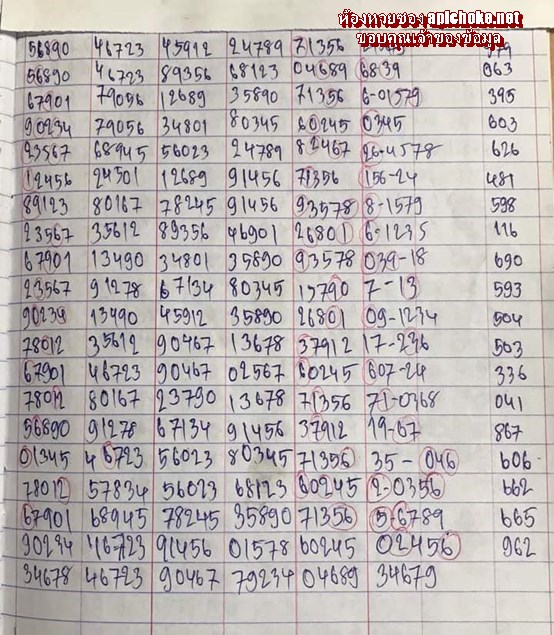 ห้องหวยซอง aplchoke.net
ขอบคุณเจ้าของข้อมูล
56890 46723 45912 24789 71356
56890 46723 89356 68123 04689 6839 063
67901 79056 12689 35890 71356 6-01579 395
90234 79056 34801 80345 60245 0345 603
23567 68945 56023 24789 82467 26-4578 626
12456 24501 12689 91456 71356 156-24 481
89123 80167 78245 91456 93578 8-1579 598
23567 35612 89356 46901 26801 6-1235 116
67901 13490 34801 35890 93578 039-18 690
23567 91278 67134 80345 15790 7-13 593
90234 13490 45912 35890 26801 09-1234 504
78012 35612 90467 13678 37912 17-236 503
67901 46723 90467 02567 60245 607-24 336
78012 80167 23790 13678 71356 71-0368 041
56890 91278 67134 91456 37912 19-67 867
01345 46723 56023 80345 71356 35-046 606
78012 57834 56023 68123 60245 2-0356 662
67901 68945 78245 35890 71356 5-6789 665
90234 46723 91456 01578 60245 02456 962
34678 46723 90467 79234 04689 34679